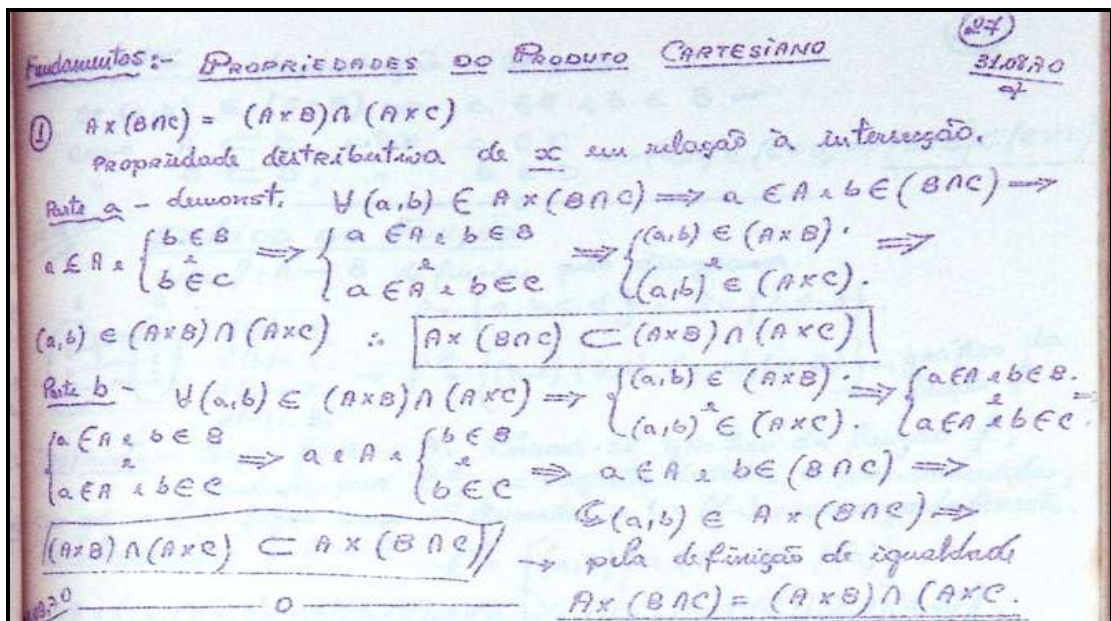 27
Fundamentos:- PROPRIEDADES DO PRODUTO CARTESIANO
31.08.70
① A x (B∩C) = (A x B) ∩ (A x C)
PROPRIEDADE DISTRIBUTIVA de x em relação à intersecção.
Parte a - demonst. ∀ (a,b) ∈ A x (B∩C) ⟹ a ∈ A e b ∈ (B∩C) ⟹
a ∈ A e { b ∈ B e b ∈ C ⟹ { a ∈ A e b ∈ B e a ∈ A e b ∈ C ⟹ { (a,b) ∈ (A x B). e (a,b) ∈ (A x C). ⟹
(a,b) ∈ (A x B) ∩ (A x C) ∴ A x (B∩C) ⊂ (A x B) ∩ (A x C)
Parte b - ∀ (a,b) ∈ (A x B) ∩ (A x C) ⟹ { (a,b) ∈ (A x B). e (a,b) ∈ (A x C). ⟹ { a ∈ A e b ∈ B. e a ∈ A e b ∈ C. ⟹
{ a ∈ A e b ∈ B e a ∈ A e b ∈ C ⟹ a e A e { b ∈ B e b ∈ C ⟹ a ∈ A e b ∈ (B∩C) ⟹
(a,b) ∈ A x (B∩C) ⟹
(A x B) ∩ (A x C) ⊂ A x (B∩C) // → pela definição de igualdade
A x (B∩C) = (A x B) ∩ (A x C.